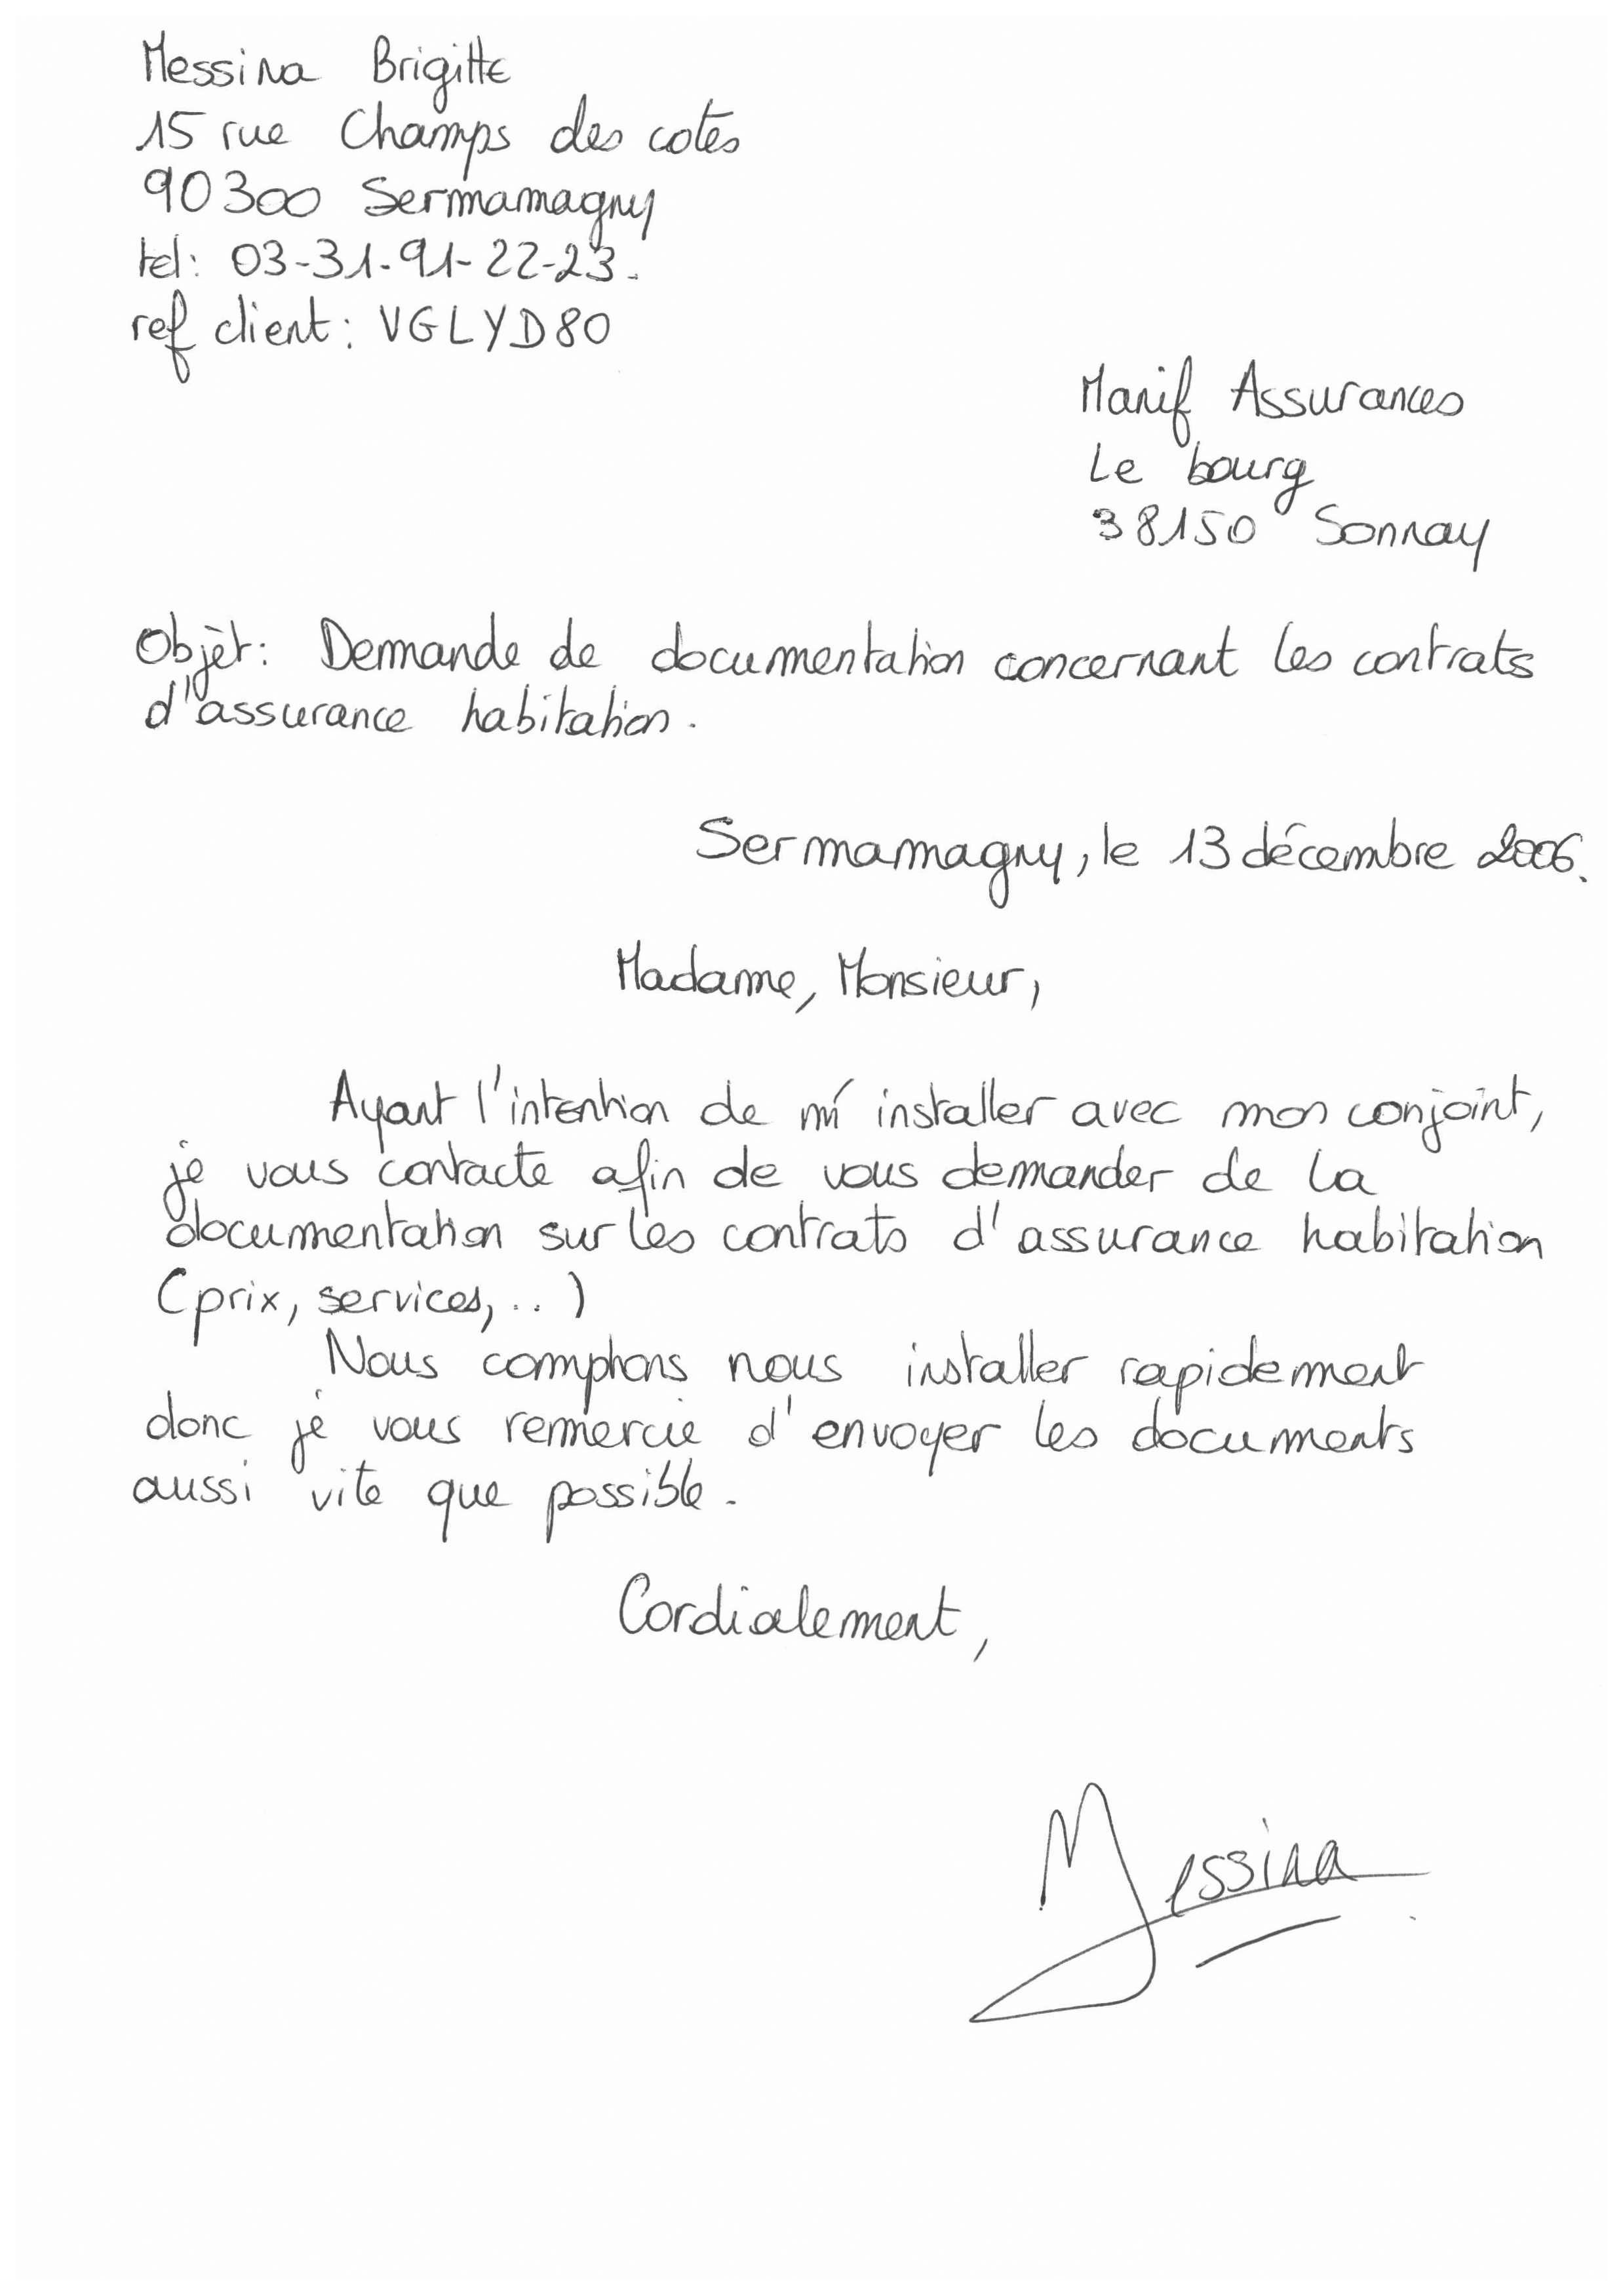 Messina Brigitte
15 rue Champs des cotes
90300 Sermamagny
tel: 03-31-91-22-23.
ref client: VGLYD80
Manif Assurances
Le bourg
38150 Sonnay
Objèt: Demande de documentation concernant les contrats
d'assurance habitation.
Sermamagny, le 13 décembre 2006.
Madame, Monsieur,
Ayant l'intention de m'installer avec mon conjoint,
je vous contacte afin de vous demander de la
documentation sur les contrats d'assurance habitation
(prix, services, ...)
Nous comptons nous installer rapidement
donc je vous remercie d'envoyer les documents
aussi vite que possible.
Cordialement,
Messina